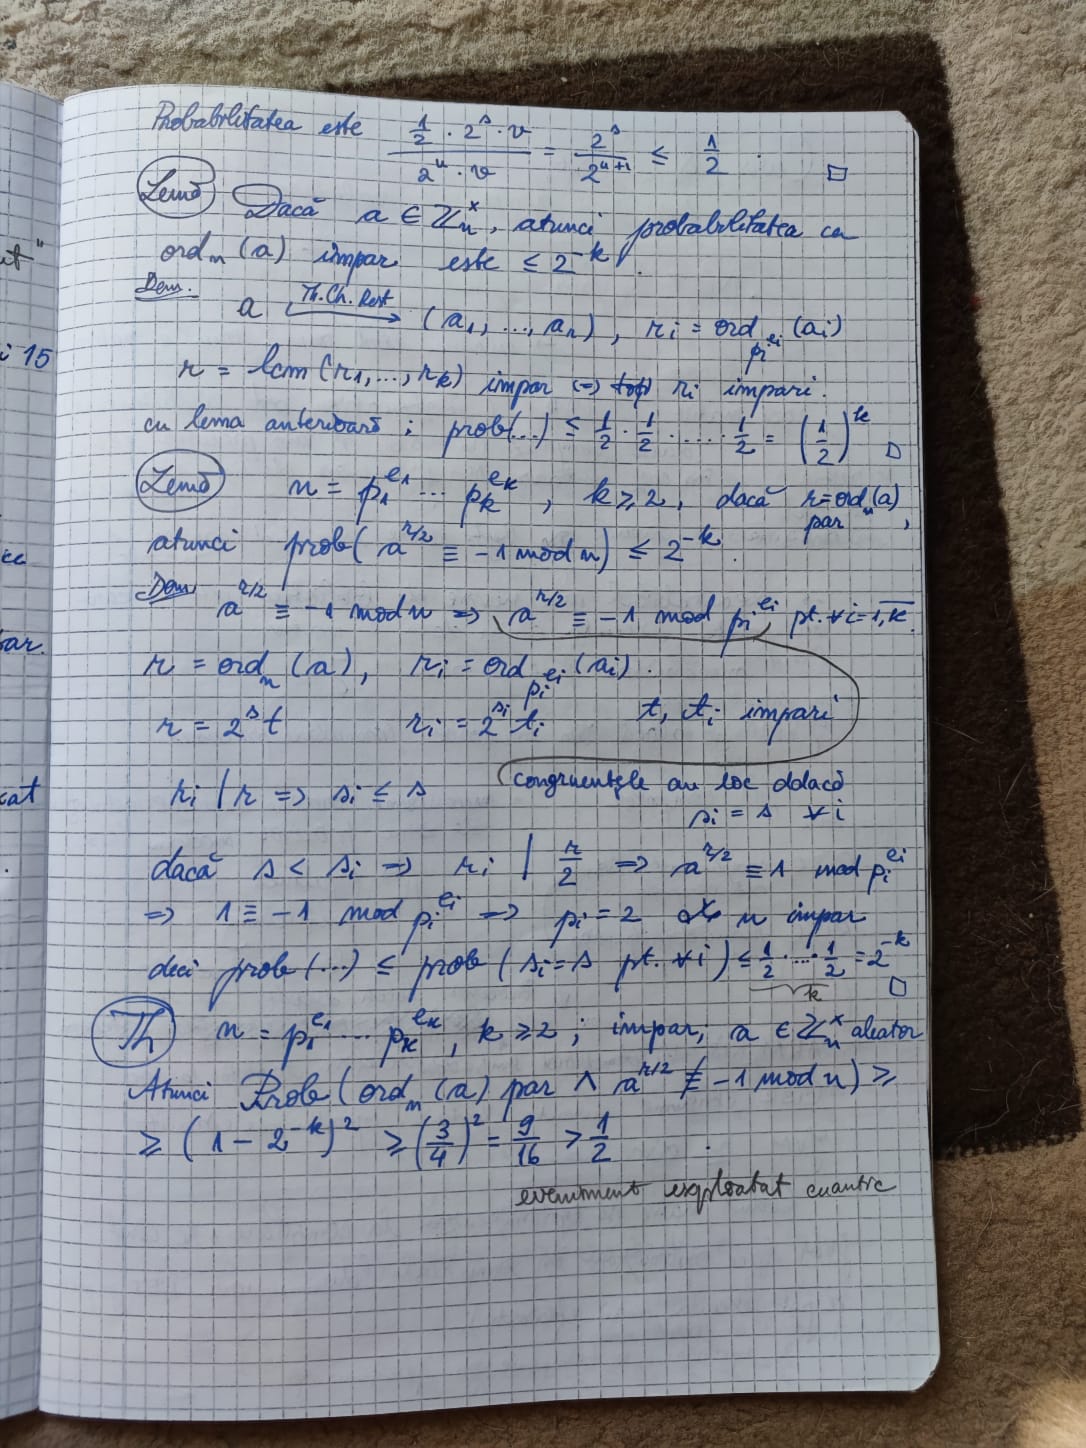 Probabilitatea este (1/2 · 2^s · v)/(2^u · v) = 2^s/2^(u+1) ≤ 1/2 . □
Lemă Dacă a ∈ ℤ_n^×, atunci probabilitatea ca
ord_n(a) impar este ≤ 2^-k.
Dem. a —Th. Ch. Rest→ (a_1, ..., a_n), r_i = ord_{p_i^{e_i}}(a_i)
r = lcm(r_1, ..., r_k) impar ⇔ r_i impari.
cu lema anterioară ; prob(...) ≤ 1/2 · 1/2 · .... · 1/2 = (1/2)^k □
Lemă n = p_1^{e_1} ... p_k^{e_k} , k ≥ 2, dacă r = ord_n(a) par,
atunci prob(a^{r/2} ≡ -1 mod n) ≤ 2^-k.
Dem a^{r/2} ≡ -1 mod n ⇒ a^{r/2} ≡ -1 mod p_i^{e_i} pt. ∀ i = 1,k.
r = ord_n(a), r_i = ord_{p_i^{e_i}}(a_i).
r = 2^s t r_i = 2^{s_i} t_i t, t_i impari
congruențele au loc ddacă
r_i | r ⇒ s_i ≤ s
s_i = s ∀ i
dacă s < s_i ⇒ r_i | r/2 ⇒ a^{r/2} ≡ 1 mod p_i^{e_i}
⇒ 1 ≡ -1 mod p_i^{e_i} ⇒ p_i = 2 n impar
deci prob(...) ≤ prob(s_i = s pt. ∀ i) ≤ 1/2 · ... · 1/2 = 2^-k
k □
Th n = p_1^{e_1} ... p_k^{e_k}, k ≥ 2 ; impar, a ∈ ℤ_n^× aleator
Atunci Prob(ord_n(a) par ∧ a^{r/2} ≢ -1 mod n) ≥
≥ (1 - 2^-k)^2 ≥ (3/4)^2 = 9/16 > 1/2 .
eveniment exploatat cuantic
i 15
cat